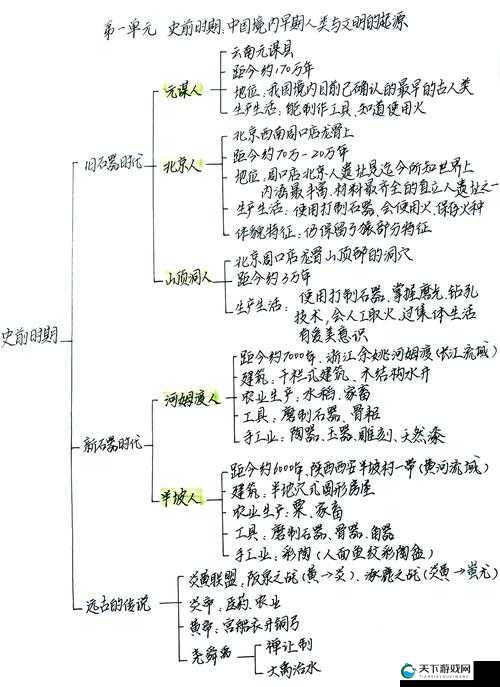 第一单元 史前时期:中国境内早期人类与文明的起源
史前时期
旧石器时代
元谋人
云南元谋县
距今约170万年
地位:我国境内目前已确认的最早的古人类
生产生活:能制作工具、知道使用火
北京人
北京西南周口店龙骨山
距今约70万-20万年
地位:周口店北京人遗址是迄今所知世界上
内涵最丰富、材料最齐全的直立人遗址之一
生产生活:使用打制石器、会使用火、保存火种
体貌特征:仍保留猿部分特征
山顶洞人
北京周口店龙骨山顶部的洞穴
距今约3万年
生产生活:使用打制石器、掌握磨光、钻孔
技术、会人工取火、过集体生活
有爱美意识
新石器时代
河姆渡人
距今约7000年、浙江余姚河姆渡(长江流域)
建筑:干栏式建筑、木结构水井
农业生产:水稻、家畜
工具:磨制石器、骨耜
手工业:陶器、玉器、雕刻、天然漆
半坡人
距今约6000年、陕西西安半坡村一带(黄河流域)
建筑:半地穴式圆形房屋
农业生产:粟、家畜
工具:磨制石器、骨器、角器
手工业:彩陶(人面鱼纹彩陶盆)
远古的传说
炎黄联盟:阪泉之战(黄→炎)、涿鹿之战(炎黄→蚩尤)
炎帝:医药、农业
黄帝:宫船衣井铜弓
尧舜禹
禅让制
大禹治水
天下游戏网